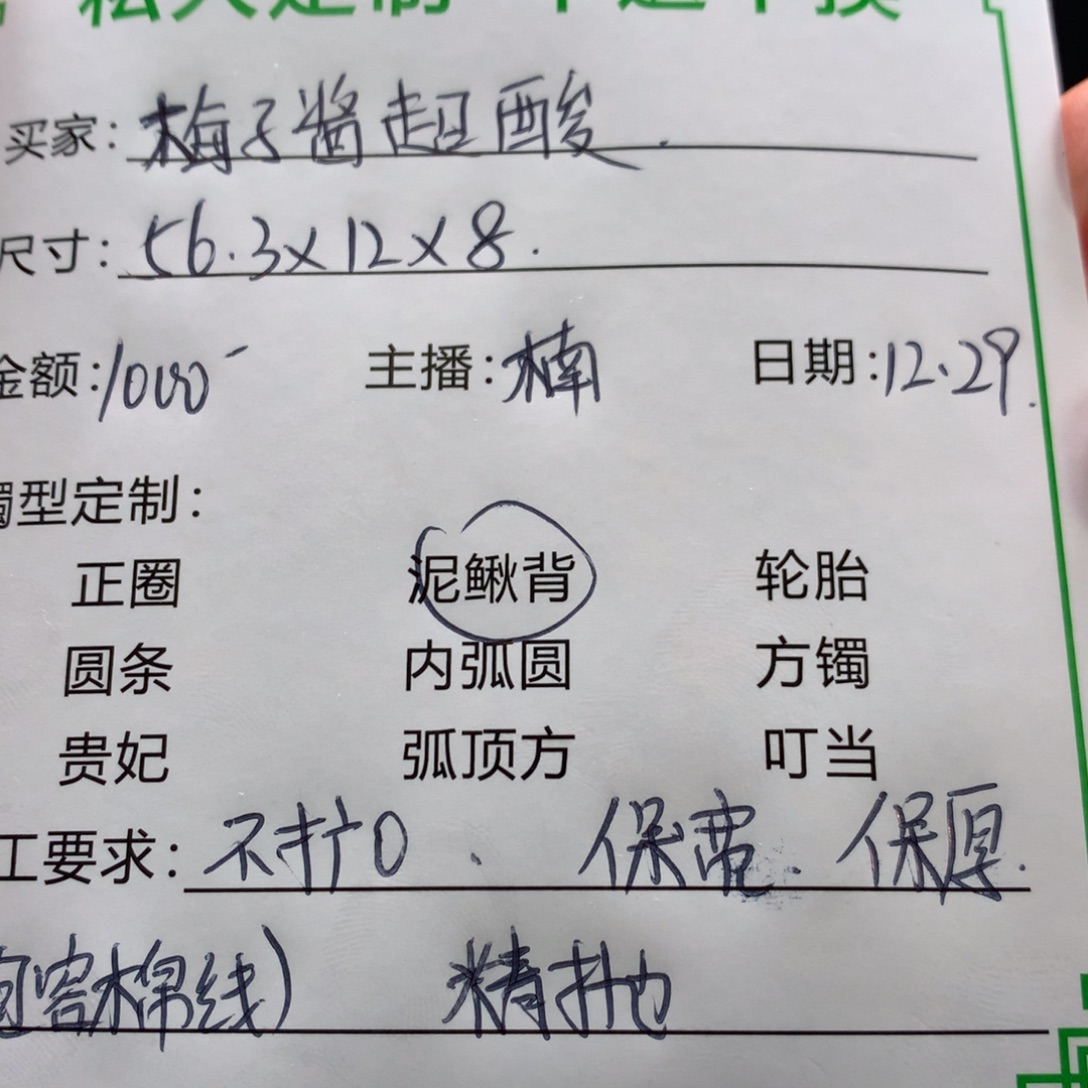 私人定制 不退不换
买家：梅子酱超酸.
尺寸：56.3×12×8.
金额：1000- 主播：楠 日期：12.29.
镯型定制：
正圈 泥鳅背 轮胎
圆条 内弧圆 方镯
贵妃 弧顶方 叮当
工要求：不扩口、保宽.保厚.
客棉线） 精抛